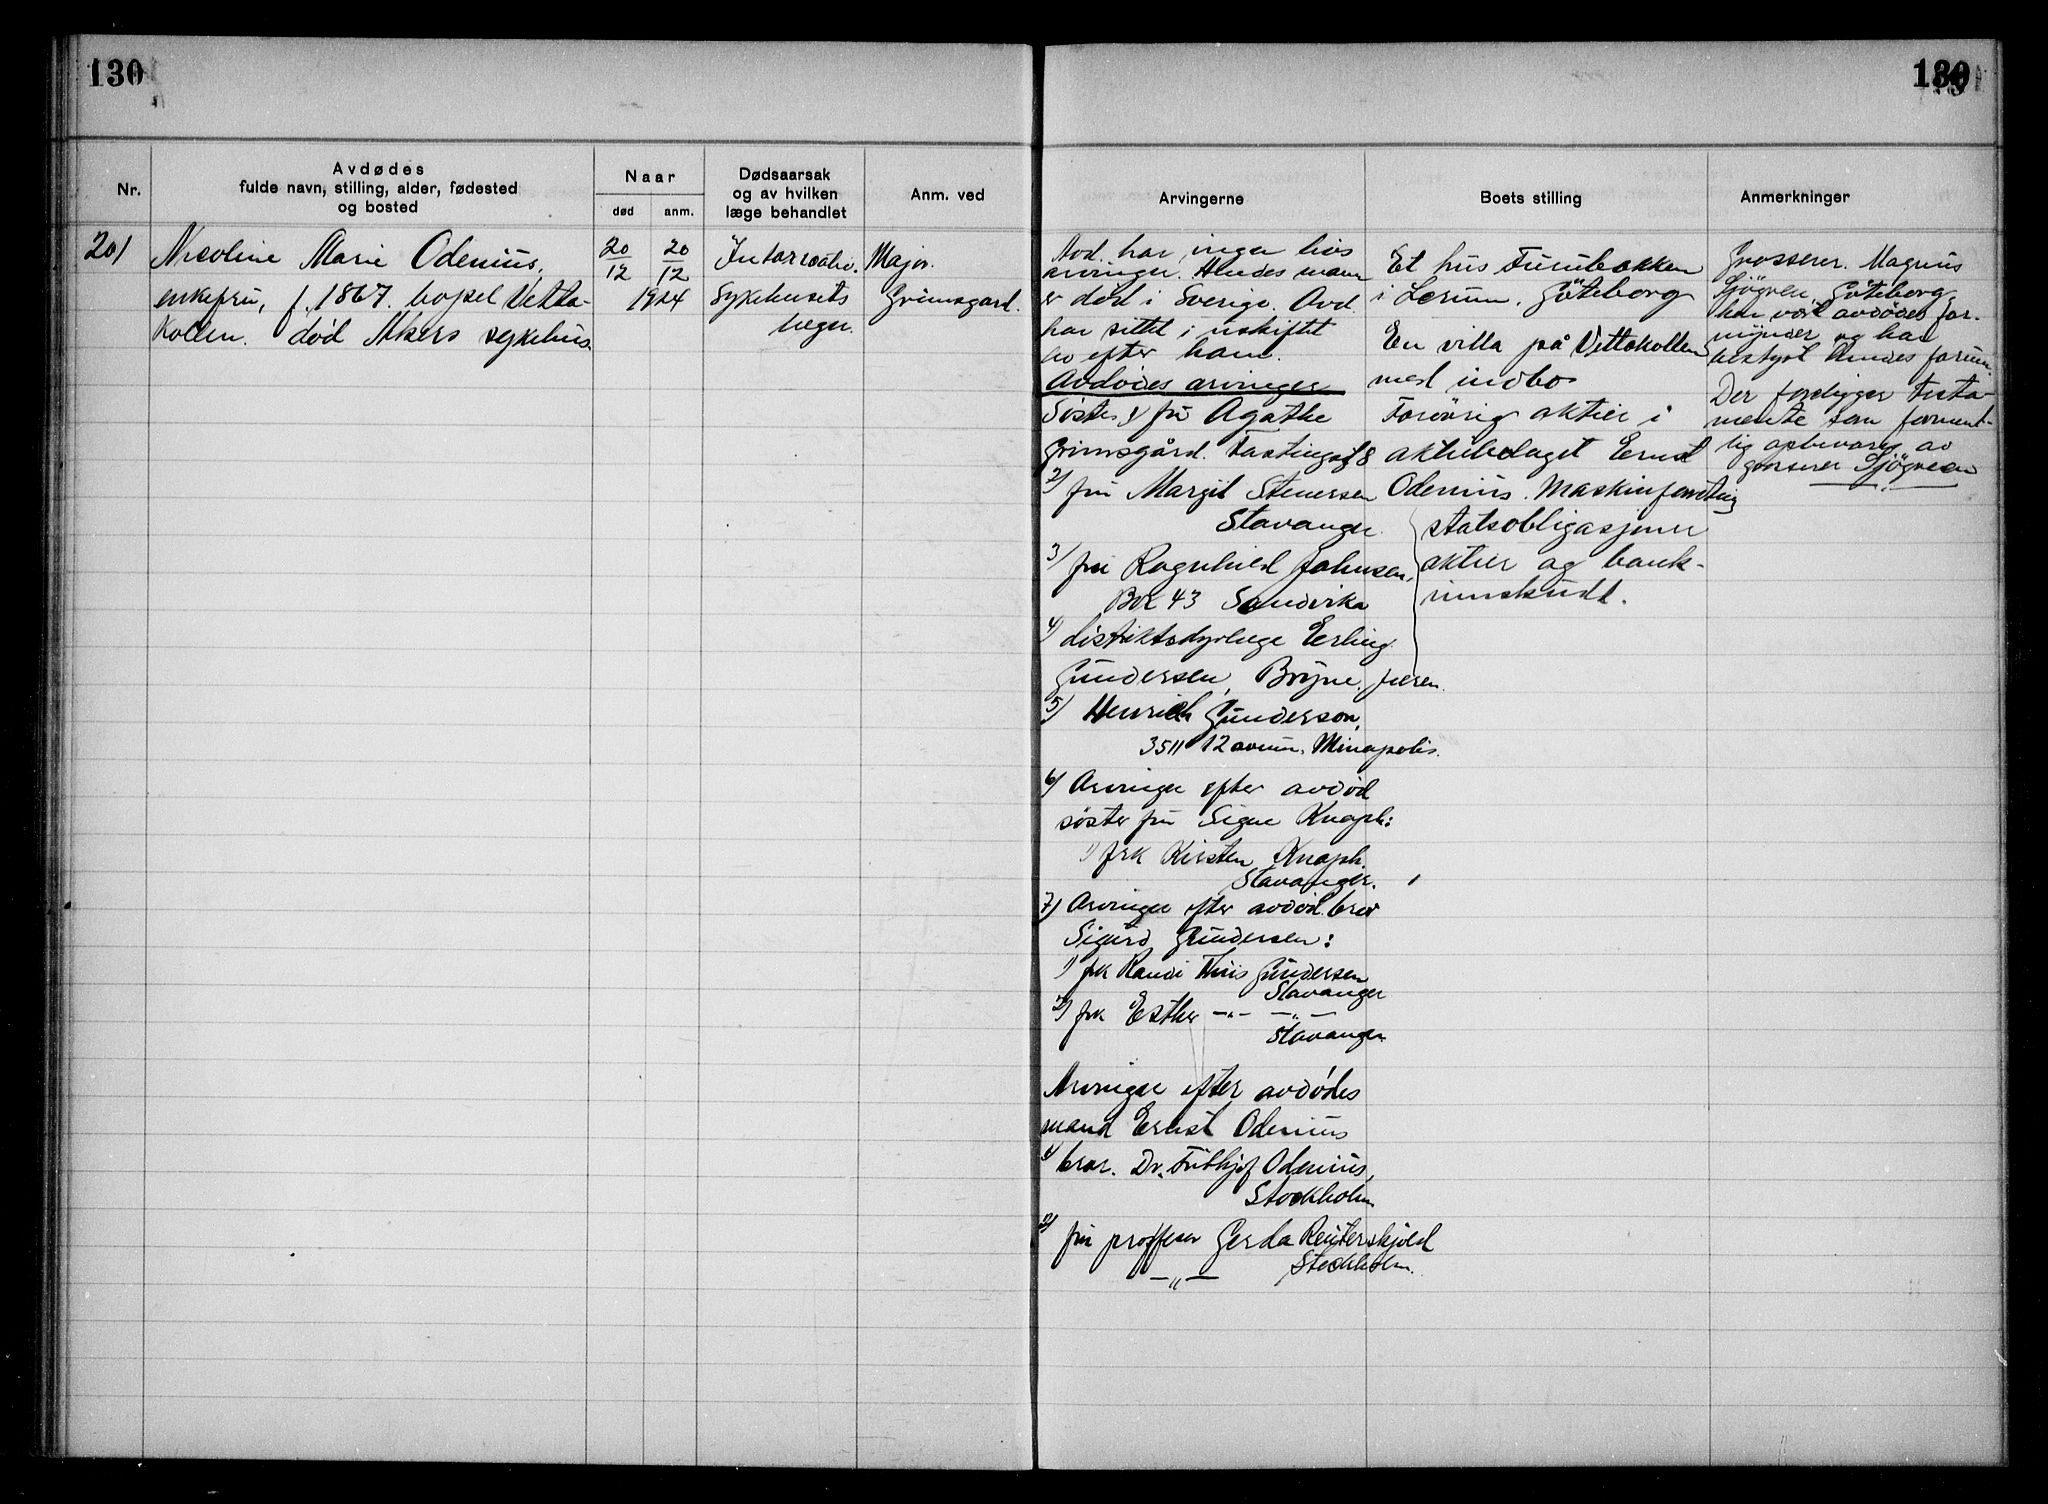 130
130
Nr.
Avdødes
fulde navn, stilling, alder, fødested
og bosted
Naar
død
anm.
Dødsaarsak
og av hvilken
læge behandlet
Anm. ved
Arvingerne
Boets stilling
Anmerkninger
201
Nicoline Marie Odenius,
enkefru, f. 1867. bopel Vetta-
kollen. død Akers sykehus.
20/12
20/12
1924
Sykehusets
læger.
Major
Grimsgard.
Avd. har ingen livs
arvinger. Hendes mann
er død i Sverige. Avd.
har sittet i uskiftet
bo efter ham.
Avdødes arvinger
Søster 1) fru Agathe
Grimsgård. Fastingsgt 8
2) fru Margit Stenersen
Stavanger.
3) fru Ragnhild Johnsen,
Box 43 Sandvika
4) distriktsdyrlæge Erling
Gundersen, Bryne, Jæren.
5) Henrich Gunderson,
3511 12 avenu. Minapolis.
6) Arvinger efter avdød
søster fru Signe Knaph:
1) frk Kirsten Knaph.
Stavanger.
7) Arvinger efter avdød bror
Sigurd Gundersen:
1) frk Randi Thiis Gundersen
Stavanger
2) frk Esther -"- -"-
Stavanger
Arvinger efter avdødes
mand Ernst Odenius
1) bror. Dr. Frithjof Odenius,
Stockholm
2) fru proffesor Gerda Reuterskjöld
-"- Stockholm.
Et hus Furubakken
i Lerum, Göteborg
En villa på Vettakollen
med indbo
Forøvrig aktier i
aktiebolaget Ernst
Odenius. Maskinforretning
statsobligasjoner
aktier og bank-
innskudd.
Grosserer Magnus
Sjögren, Göteborg,
har vært avdødes for-
mynder og har
bestyrt hendes formue.
Der foreligger testa-
mente som forment-
lig opbevares av
grosserer Sjögren